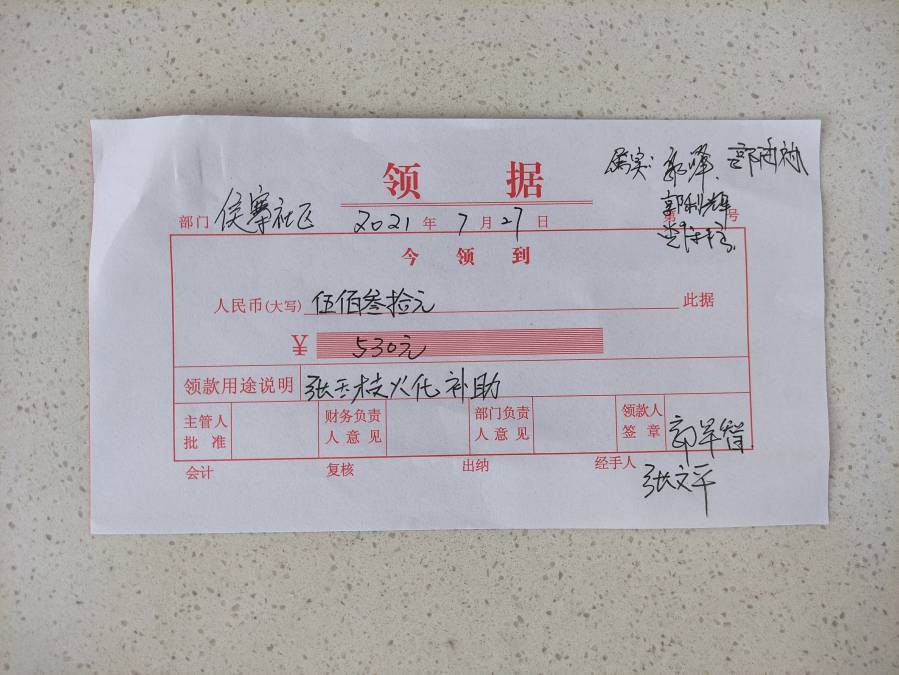 领 据
属实: 郭峰.
郭利辉
部门 侯寨社区 2021 年 7 月 27 日 第 号
今 领 到
人民币(大写) 伍佰叁拾元 此据
¥ 530元
领款用途说明 张玉枝火化补助
主管人批准 财务负责人意见 部门负责人意见 领款人签章 郭军智
会计 复核 出纳 经手人 张文平